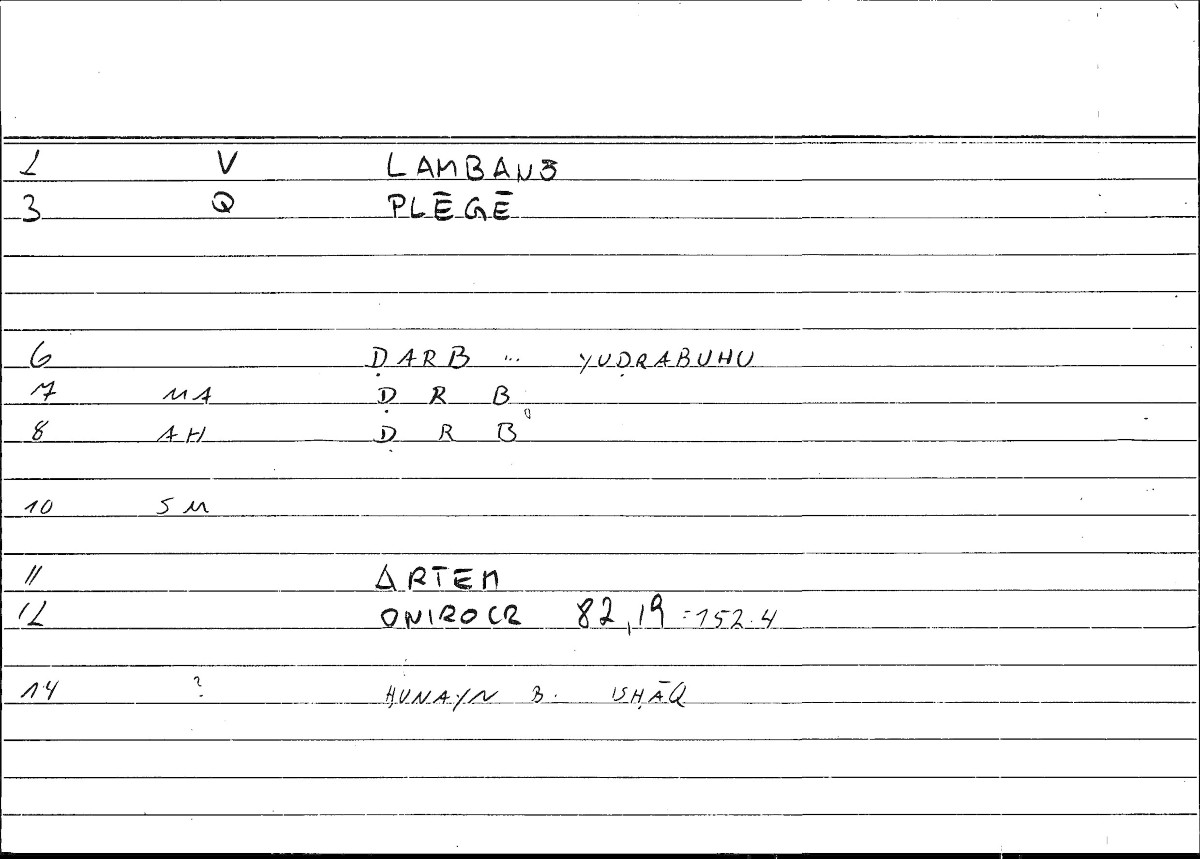 2 V LAMBANŌ
3 Q PLĒGĒ
6 ḌARB ... YUḌRABUHU
7 MA Ḍ R B
8 AH Ḍ R B
10 SM
11 ARTEM
12 ONIROCR 82,19 = 152.4
14 ? ḤUNAYN B. ISḤĀQ